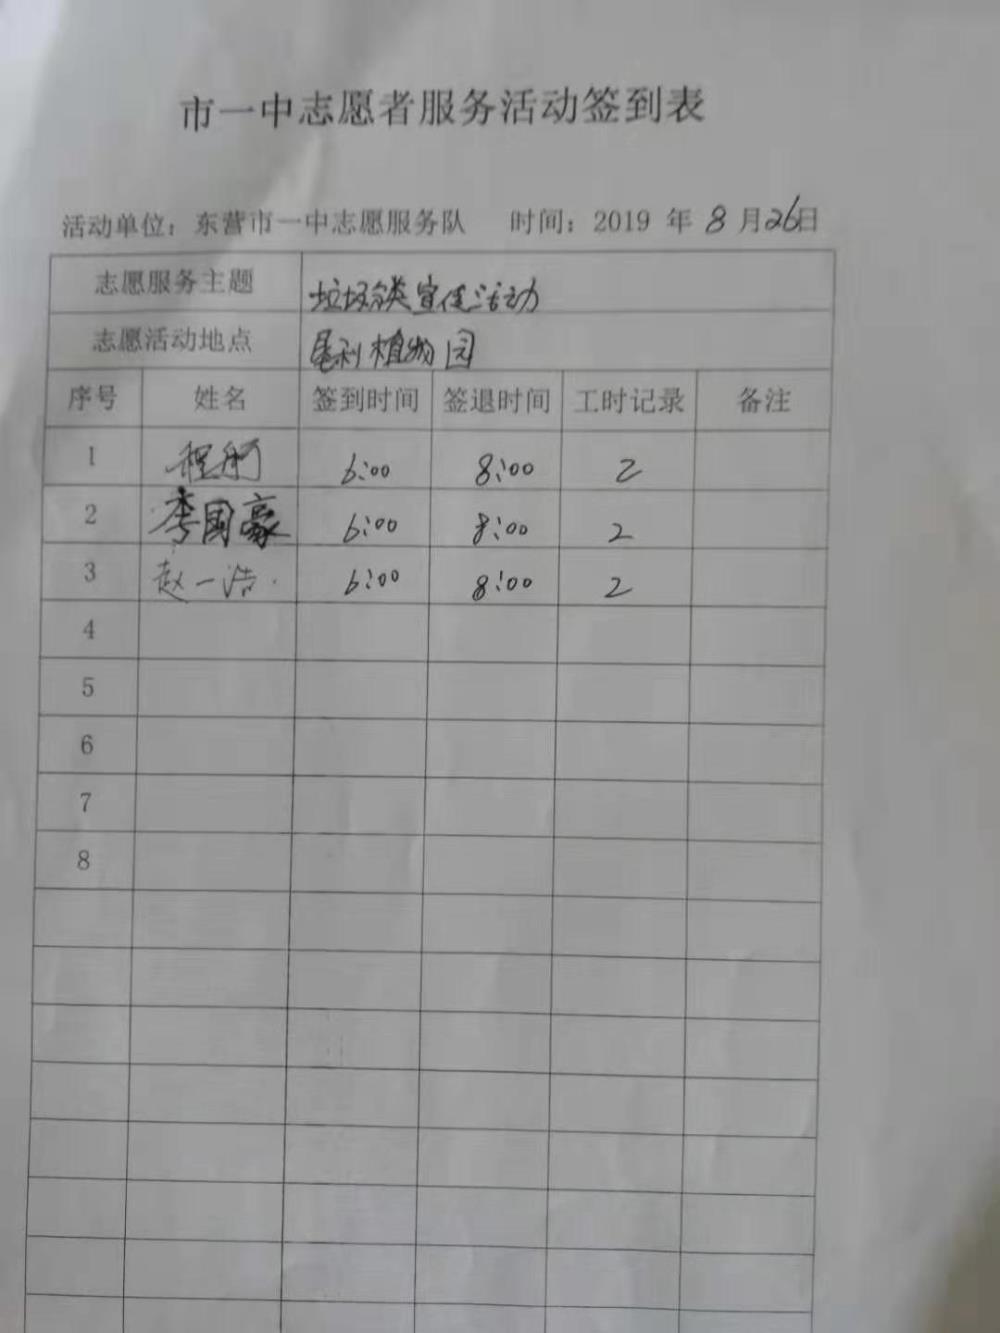 市一中志愿者服务活动签到表
活动单位：东营市一中志愿服务队 时间：2019 年 8 月 26 日
志愿服务主题 垃圾分类宣传活动
志愿活动地点 垦利植物园
序号 姓名 签到时间 签退时间 工时记录 备注
1 程 6:00 8:00 2
2 李国豪 6:00 8:00 2
3 赵一浩 6:00 8:00 2
4
5
6
7
8